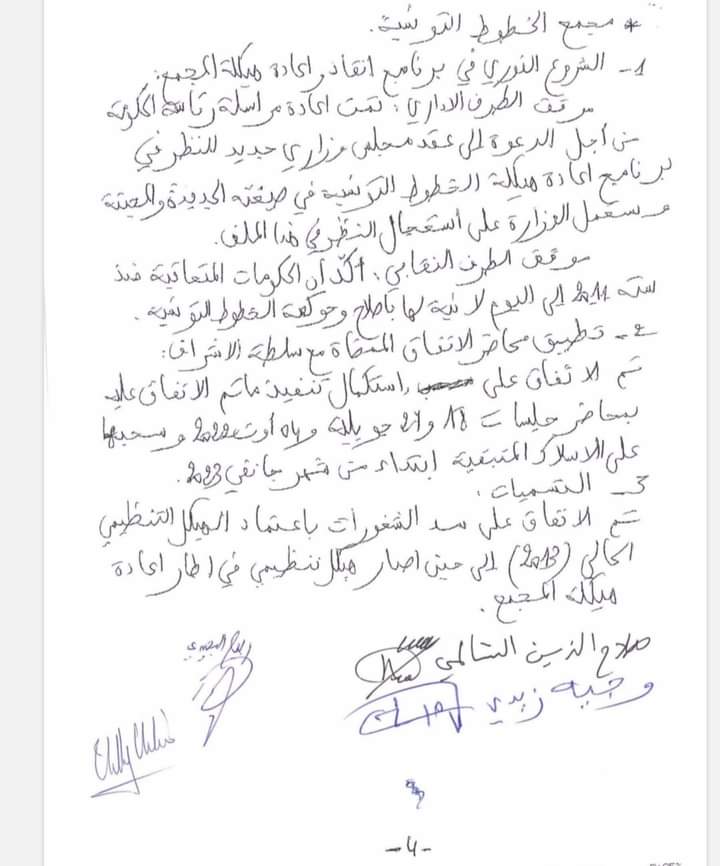 * مجمع الخطوط التونسية.
1- الشروع الفوري في برنامج انقاذ و اعادة هيكلة المجمع:
موقف الطرف الاداري: تمت اعادة مراسلة رئاسة الحكومة
من أجل الدعوة الى عقد مجلس وزاري جديد للنظر في
برنامج اعادة هيكلة الخطوط التونسية في صيغته الجديدة والمحينة
وستعمل الوزارة على استعجال النظر في هذا الملف.
موقف الطرف النقابي: أكّد أن الحكومات المتعاقبة منذ
سنة 2011 إلى اليوم لا نية لها بإصلاح وحوكمة الخطوط التونسية.
2- تطبيق محاضر الاتفاق الممضاة مع سلطة الاشراف:
تم الاتفاق على استكمال تنفيذ ما تم الاتفاق عليه
بمحاضر جلسات 18 و 27 جويلية و 04 أوت 2022 وسحبها
على الاسلاك المتبقية ابتداء من شهر جانفي 2023.
3- التسميات:
تم الاتفاق على سد الشغورات باعتماد الهيكل التنظيمي
الحالي (2013) إلى حين اصدار هيكل تنظيمي في اطار اعادة
هيكلة المجمع.
صلاح الدين السالمي
وجيه زيدي
-4-